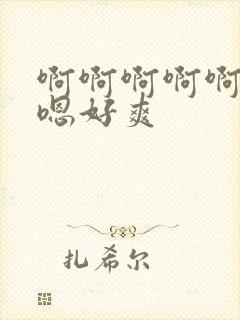 啊啊啊啊啊
嗯好爽
扎希尔